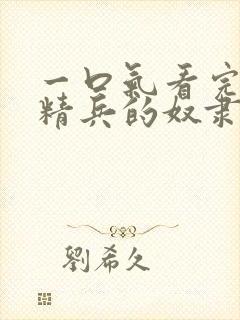 一口氣看完
精兵的奴隶
劉希久